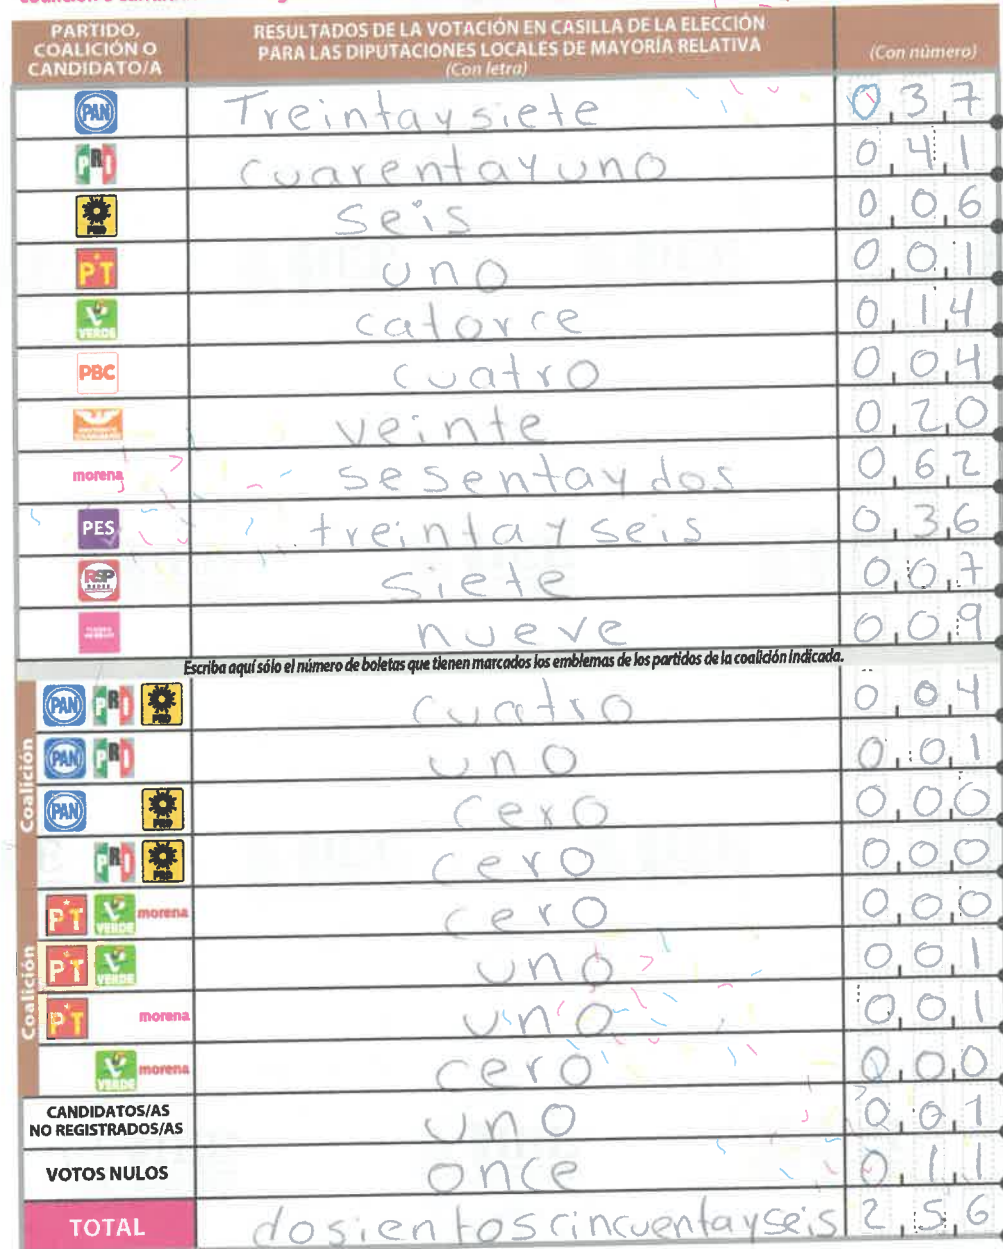 PARTIDO, COALICIÓN O CANDIDATO/A
RESULTADOS DE LA VOTACIÓN EN CASILLA DE LA ELECCIÓN PARA LAS DIPUTACIONES LOCALES DE MAYORÍA RELATIVA
(Con letra)
(Con número)
PAN Treinta y siete 037
PRI cuarenta y uno 041
PRD seis 006
PT uno 001
VERDE catorce 014
PBC cuatro 004
veinte 020
morena sesenta y dos 062
PES treinta y seis 036
RSP siete 007
nueve 009
Escriba aquí sólo el número de boletas que tienen marcados los emblemas de los partidos de la coalición indicada.
Coalición
PAN PRI PRD cuatro 004
PAN PRI uno 001
PAN PRD cero 000
PRI PRD cero 000
Coalición
PT VERDE morena cero 000
PT VERDE uno 001
PT morena uno 001
VERDE morena cero 000
CANDIDATOS/AS NO REGISTRADOS/AS uno 001
VOTOS NULOS once 011
TOTAL dosientos cincuenta y seis 256